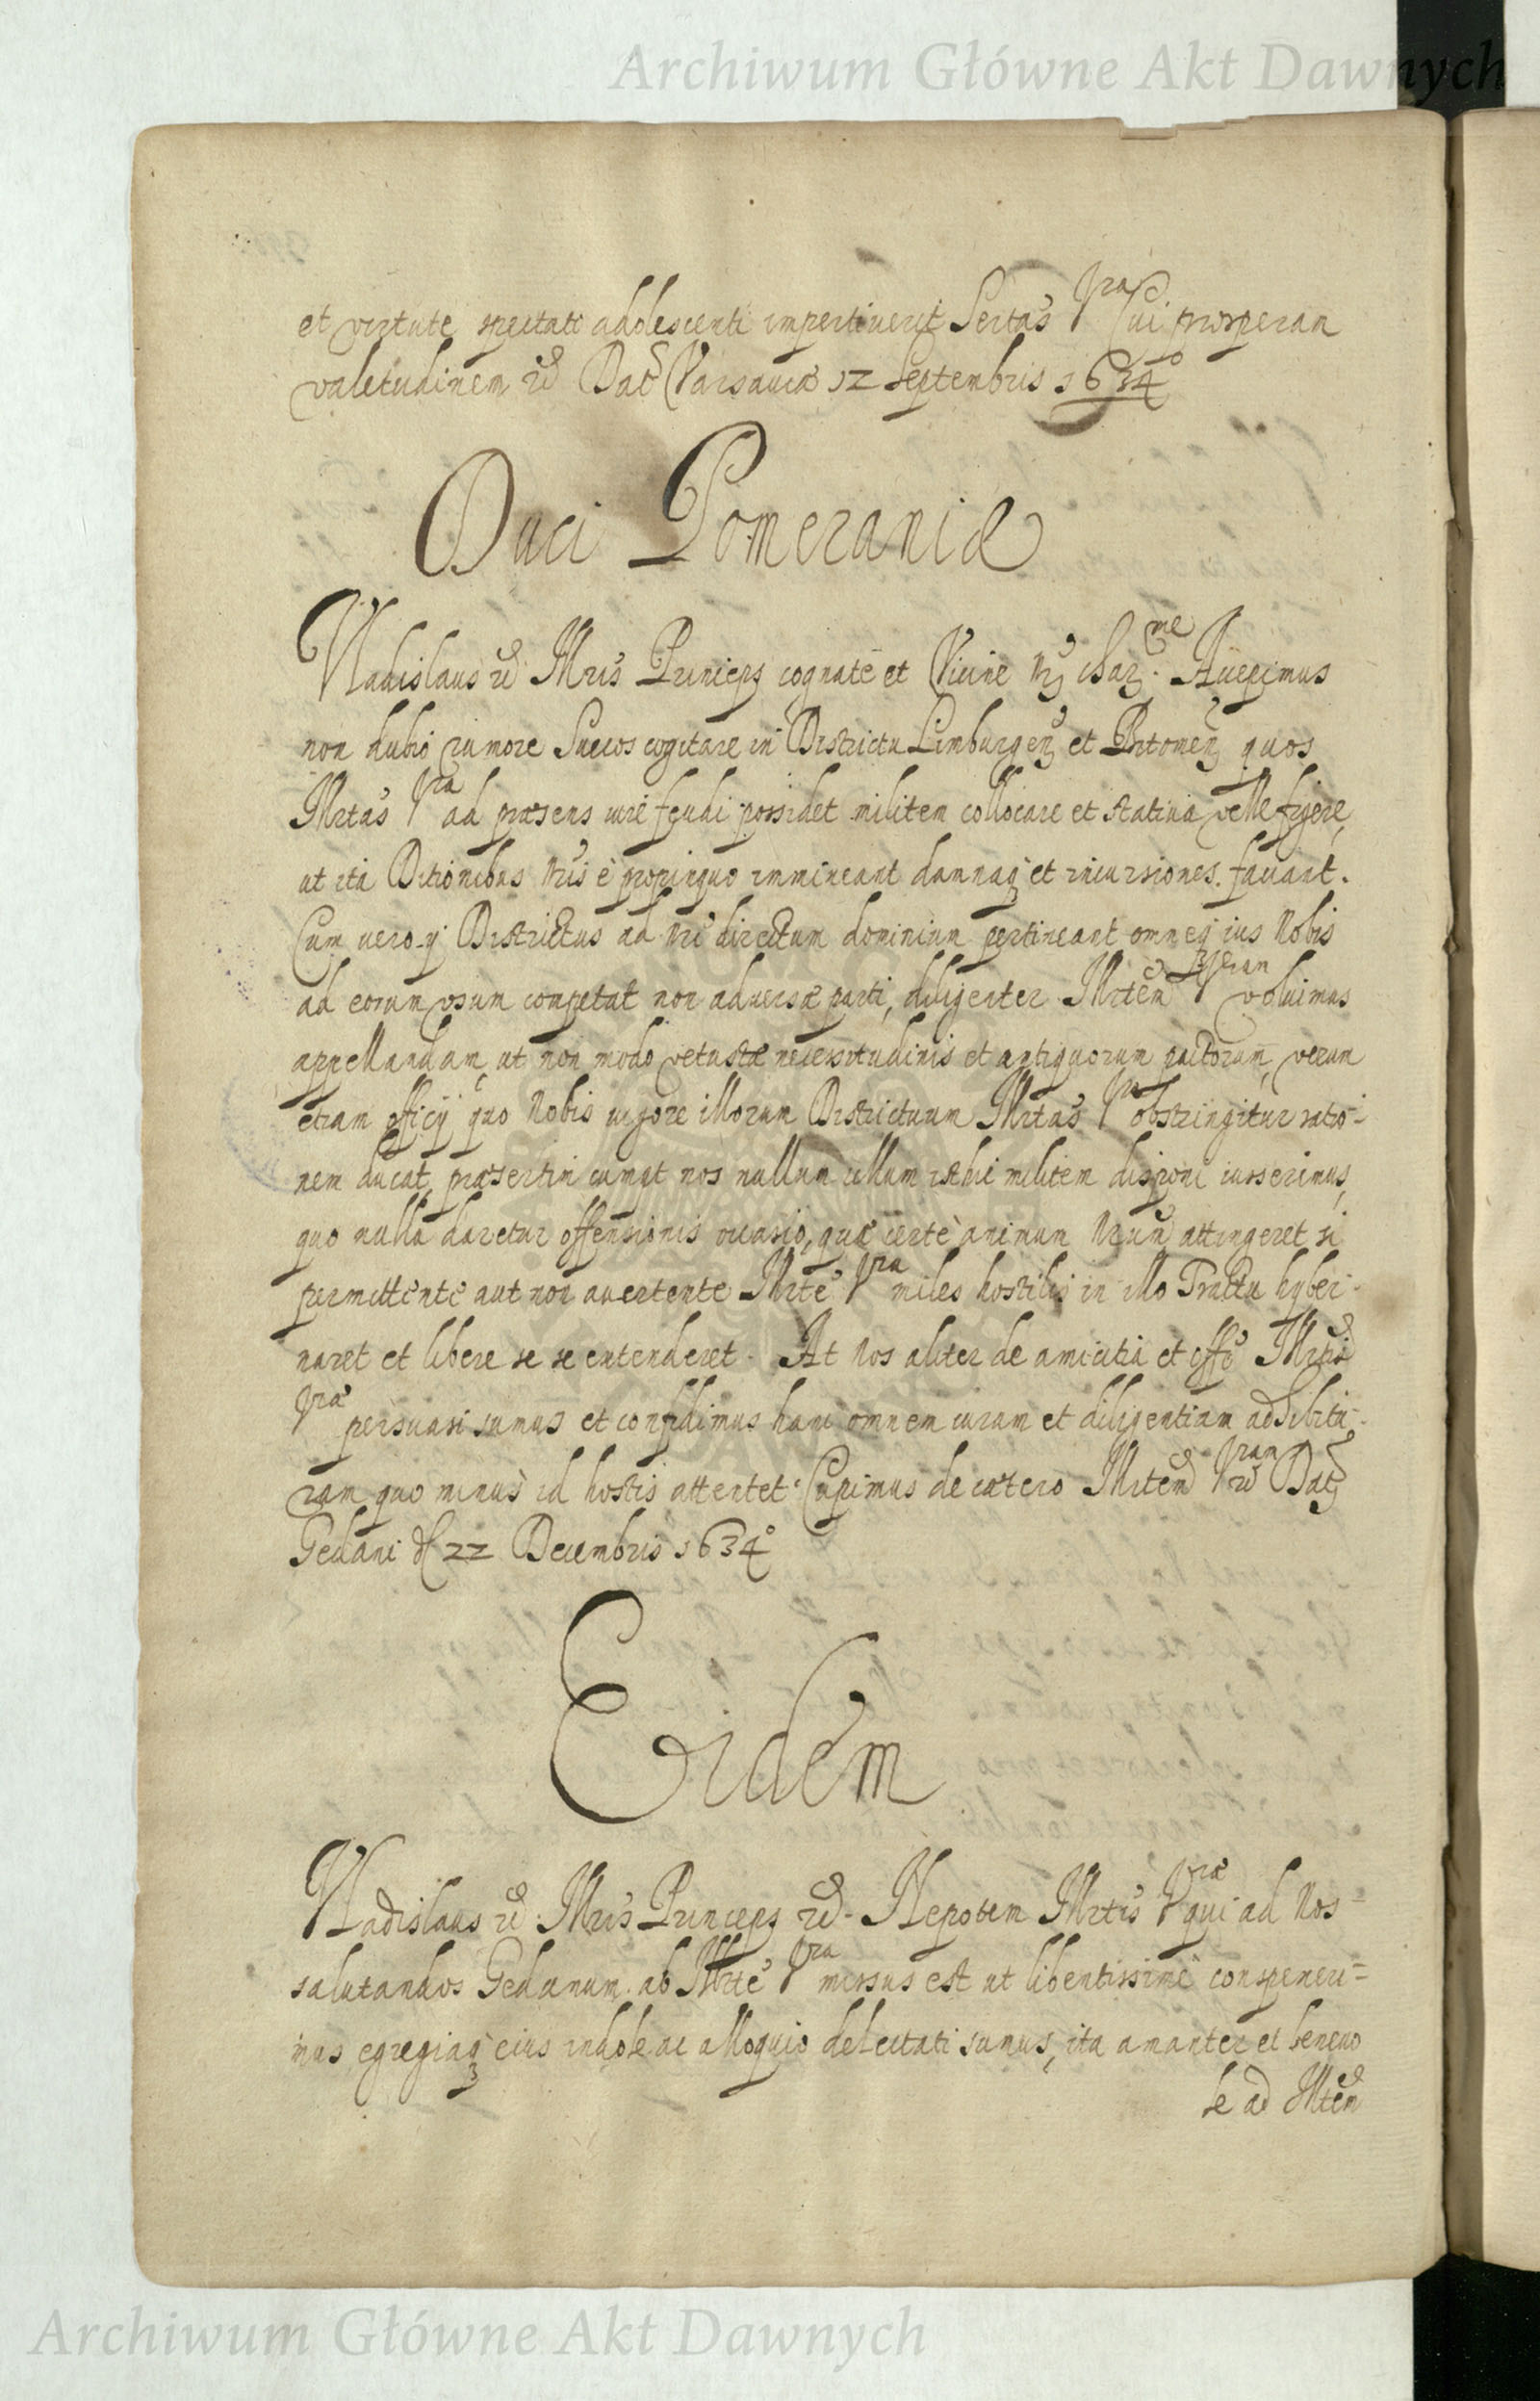 Archiwum Główne Akt Dawnych
et virtute spectati adolescenti impertiverit Sertas Vra Cui prosperan
valetudinem Dat Varsaviæ 12 Septembris 1634º
Duci Pomeraniæ
Vladislaus Illris Princeps cognate et Vicine Nr char.me Accepimus
non dubio rumore Suecos cogitare in Districtu Limburgen et Bitonien quos
Illrtas Vra ad præsens iure feudi possidet militem collocare et stativa velle figere,
ut ita Ditionibus Nris è propinquo immineant damnaq et incursiones faciant.
Cum vero ij Districtus ad Nrē directum dominium pertineant omneq ius Nobis
ad eorum usum competat non adversæ parti, diligenter Illrtem Vram voluimus
appellandam, ut non modo vetustæ necessitudinis et antiquorum pactorum, verum
etiam officij quo Nobis vigore illorum Districtuum Illrtas Vra obstringitur ratio-
nem ducat, præsertim cum et nos nullum illum isthic militem disponi iusserimus,
quo nulla daretur offensionis occasio, quæ certè animum Nrum attingeret si
permittente aut non avertente Illrte Vra miles hostilis in illo Tractu hyber-
naret et libere se se extenderet. At Nos aliter de amicitia et offo Illrtis
Vræ persuasi sumus et confidimus hanc omnem curam et diligentiam adhibitu-
ram quo minus id hostis attentet. Cupimus de cætero Illrtem Vram Dat
Gedani d 22 Decembris 1634º
Eidem
Vladislaus Illris Princeps Nepotem Illrtis Vræ qui ad Nos
salutandos Gedanum ab Illrte Vra missus est ut libentissime conspexeri=
mus egregiaq eius indole ac alloquio delectati sumus, ita amanter et benevo
le ad Illtem
Archiwum Główne Akt Dawnych